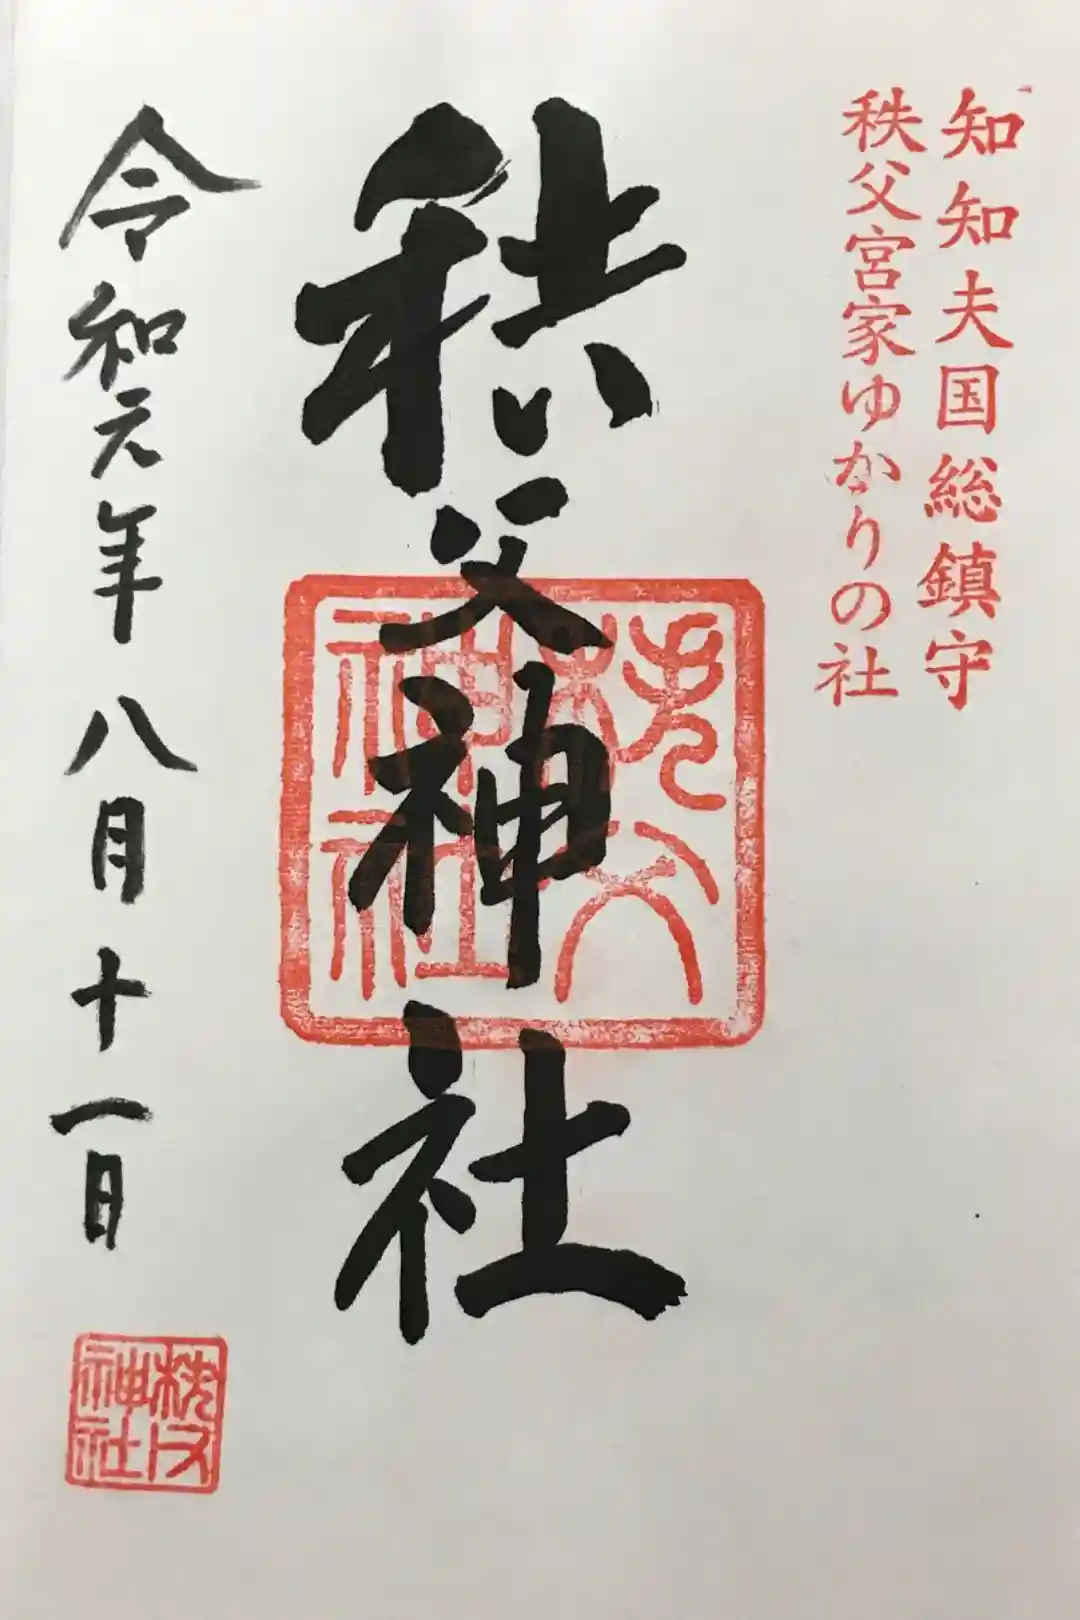 知知夫国総鎮守
秩父宮家ゆかりの社
秩父神社
令和元年八月十一日
秩父神社
秩父神社